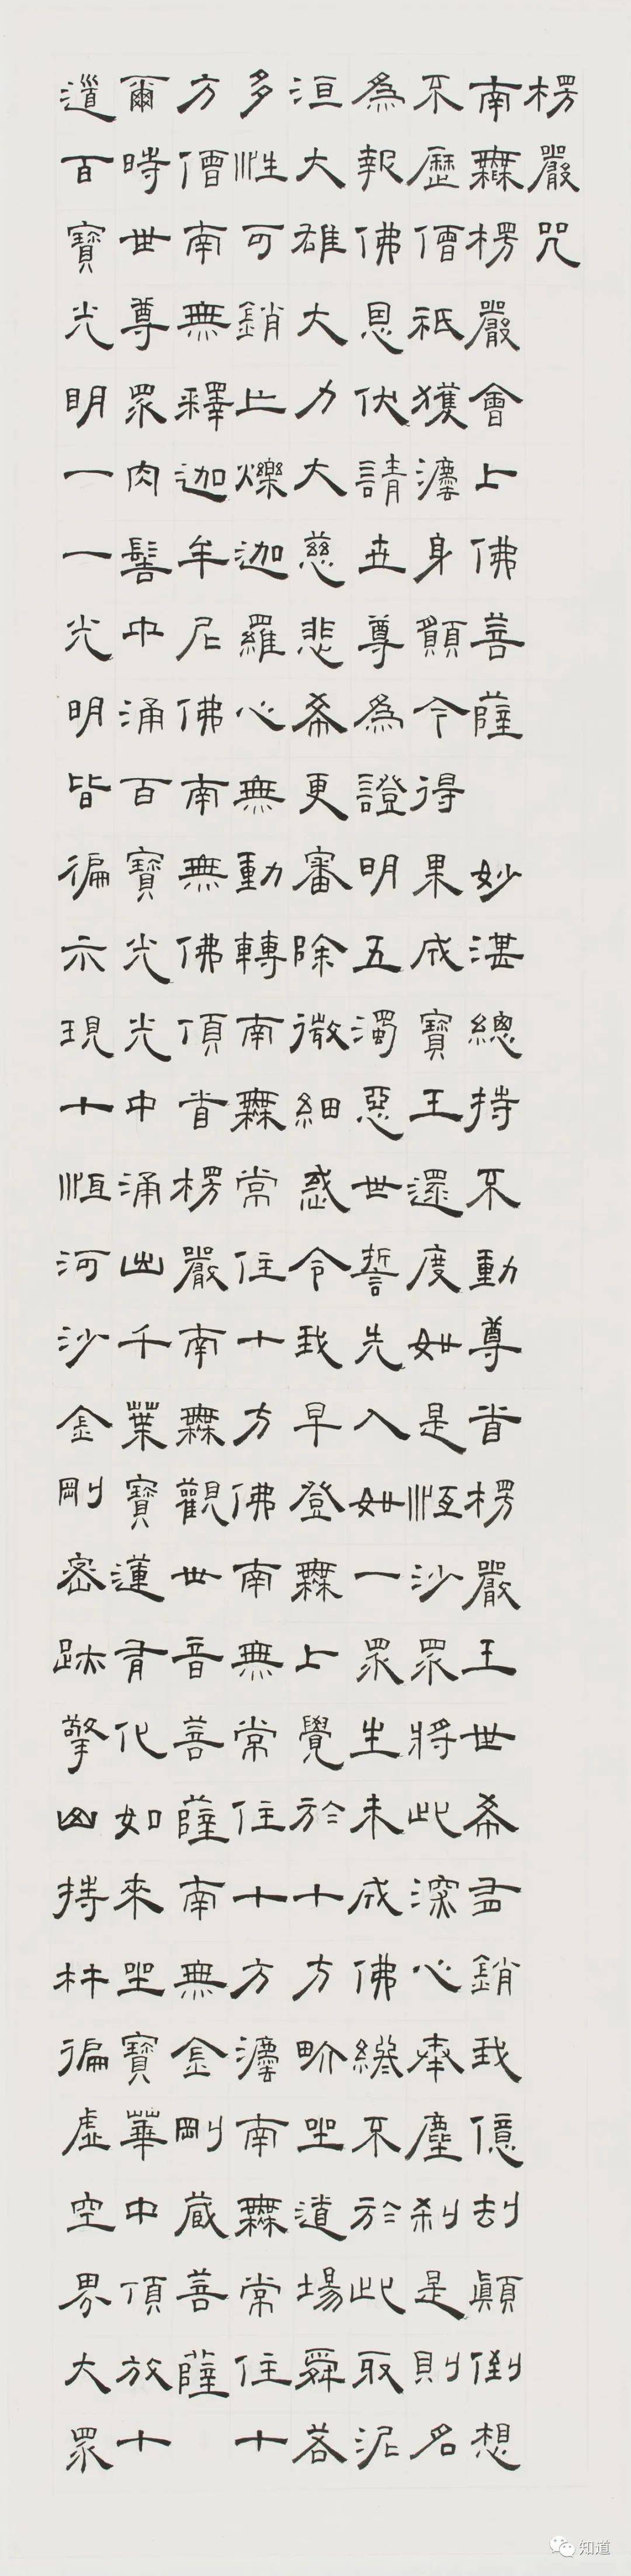 楞嚴咒
南無楞嚴會上佛菩薩 妙湛總持不動尊首楞嚴王世希有銷我億劫顛倒想
不歷僧祇獲灋身願今得果成寶王還度如是恆沙眾將此深心奉塵剎是則名
為報佛恩伏請世尊為證明五濁惡世誓先入如一眾生未成佛終不於此取泥
洹大雄大力大慈悲希更審除微細惑令我早登無上覺於十方界坐道場舜若
多性可銷亡爍迦羅心無動轉南無常住十方佛南無常住十方灋南無常住十
方僧南無釋迦牟尼佛南無佛頂首楞嚴南無觀世音菩薩南無金剛藏菩薩
爾時世尊眾肉髻中涌百寶光光中涌出千葉寶蓮有化如來坐寶華中頂放十
道百寶光明一一光明皆徧示現十恆河沙金剛密跡擎山持杵徧虛空界大眾
知道